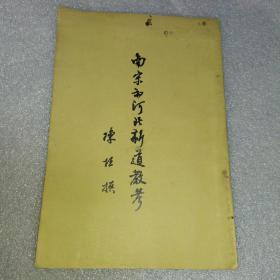 南宋初河北新道教考
陳垣撰